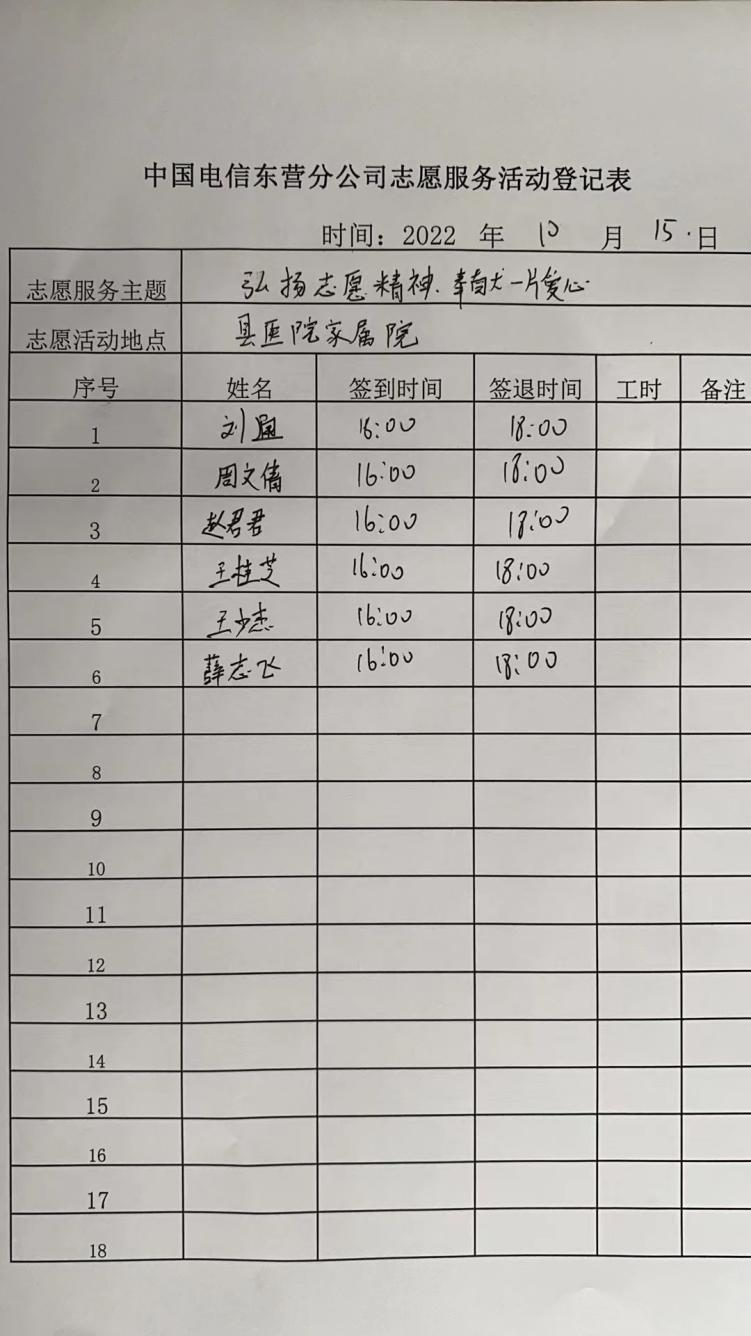 中国电信东营分公司志愿服务活动登记表
时间：2022 年 10 月 15 日
志愿服务主题 弘扬志愿精神.奉献一片爱心
志愿活动地点 县医院家属院
序号 姓名 签到时间 签退时间 工时 备注
1 刘 16:00 18:00
2 周文倩 16:00 18:00
3 赵君君 16:00 18:00
4 王桂芝 16:00 18:00
5 王少杰 16:00 18:00
6 薛志飞 16:00 18:00
7
8
9
10
11
12
13
14
15
16
17
18